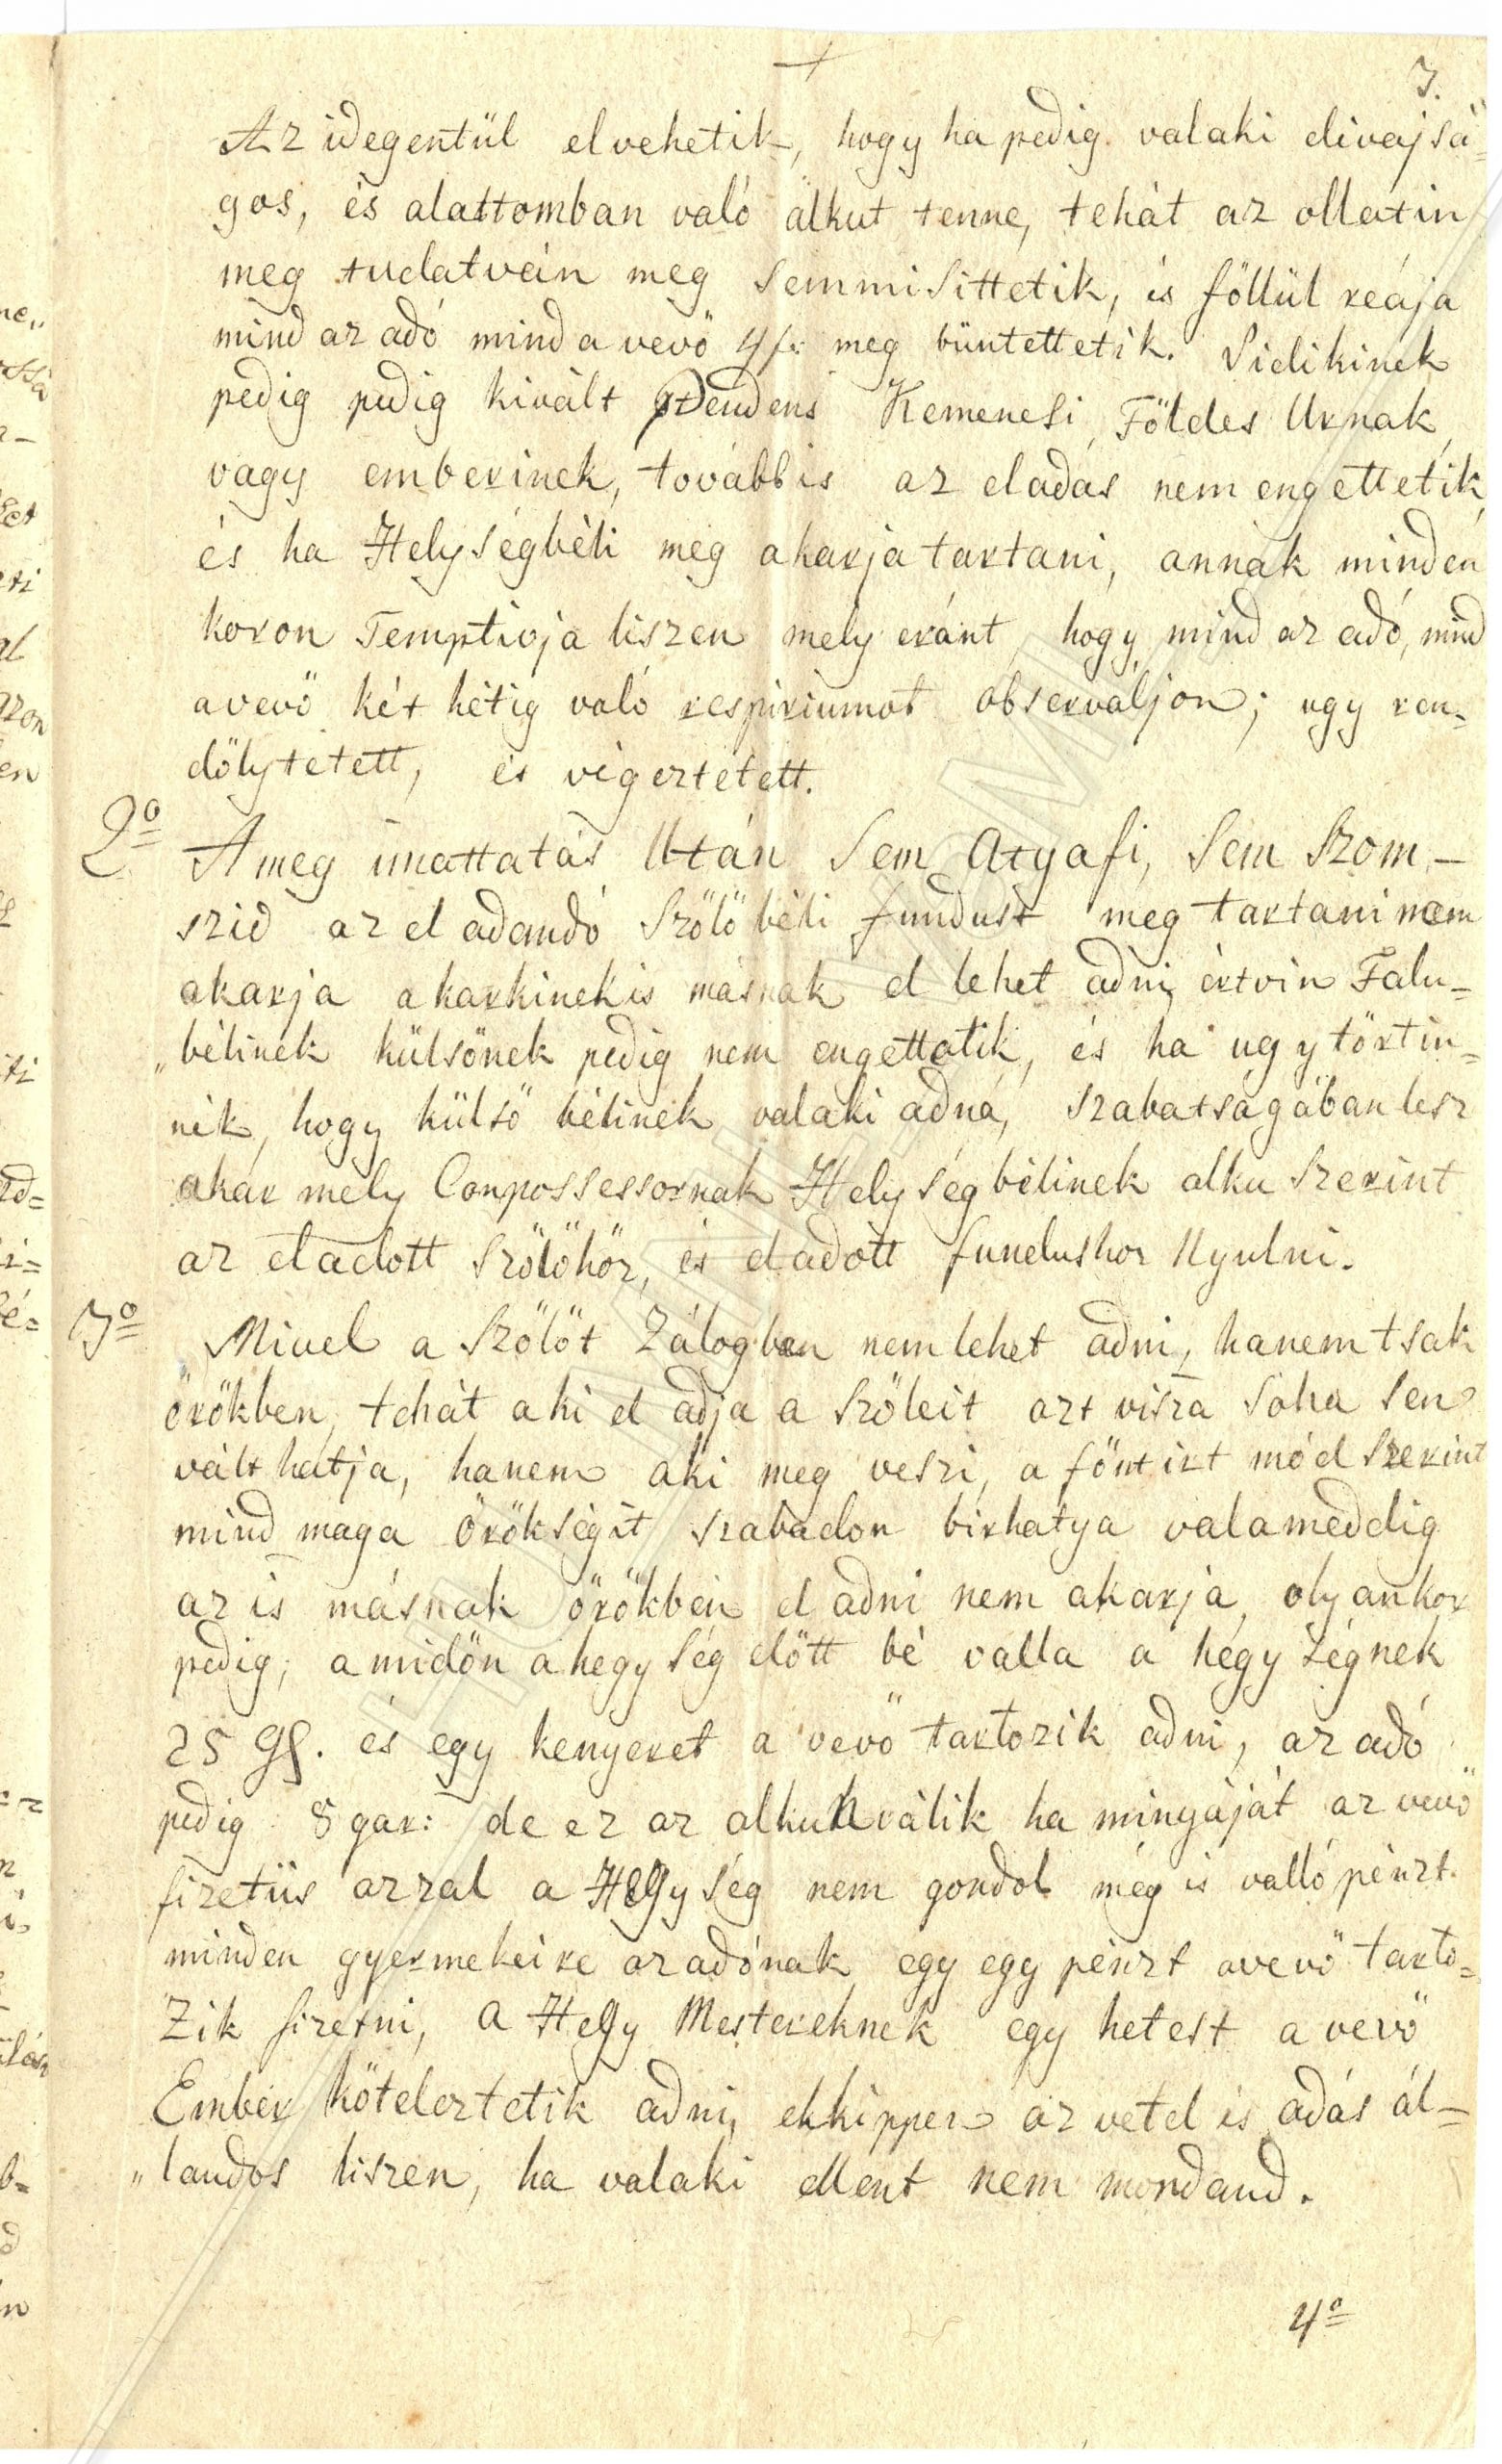 3.
Az idegentül elvehetik, hogy ha pedig valaki álvajsá=
gos, és alattomban való alkut tenne, tehát az ollatin
meg tudatván meg semmisittetik, és föllül reája
mind az adó mind a vevö 4 fr: meg büntettetik. Vidikinek
pedig pedig kivált Kemenesi Földes Urnak,
vagy emberinek, továbbis az eladás nem engettetik,
és ha Helységbéli meg akarja tartani, annak minden
koron Temptivja liszen mely eránt, hogy mind az adó, mind
a vevö két hétig való respiriumot observáljon; ugy ren=
dölytetett, és végeztetett.
2º A meg Után Sem Atyafi, Sem Szom=
szid az el adandó Szölö béli fundust meg tartani nem
akarja akarkinekis másnak el lehet adni, értvin Falu=
„bélinek külsönek pedig nem engettetik, és ha ugy törtin=
nik, hogy külsö bélinek valaki adná, szabatságában lesz
akár mely Conpossessornak Helységbélinek alku szerint
az eladott Szölöhöz, és eladott fundushoz Nyulni.
3º Mivel a Szölöt Zálogban nem lehet adni, hanem tsak
örökben, tehát aki el adja a Szöleit azt visza soha sem
vált hatja, hanem aki meg veszi, a fönt irt mód szerint
mind maga örökségit szabadon birhatya valameddig
az is másnak örökben el adni nem akarja, olyankor
pedig, a midön a hegység elött bé valla a hégységnek
25 gs. és egy kenyeret a vevö tartozik adni, az adó
pedig 8 gar: de ez az alkun válik ha mingáját az vevö
fizetüs azzal a Hegység nem gondol még is valló pénzt.
minden gyermekeire az adónak egy egy pénzt a vevö tarto=
zik fizetni, a Hegy Mestereknek egy hetest a vevö
Ember köteleztetik adni, ekkipper az vetel és adás ál=
„landos liszen, ha valaki ellent nem mondand.
4º